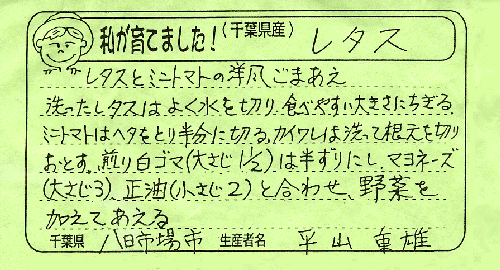 私が育てました！（千葉県産） レタス
レタスとミニトマトの洋風ごまあえ
洗ったレタスはよく水を切り、食べやすい大きさにちぎる。
ミニトマトはヘタをとり半分に切る。カイワレは洗って根元を切り
おとす。煎り白ゴマ(大さじ1½)は半ずりにし、マヨネーズ
(大さじ3)、正油(小さじ2)と合わせ、野菜を
加えてあえる
千葉県 八日市場市 生産者名 平山 重雄